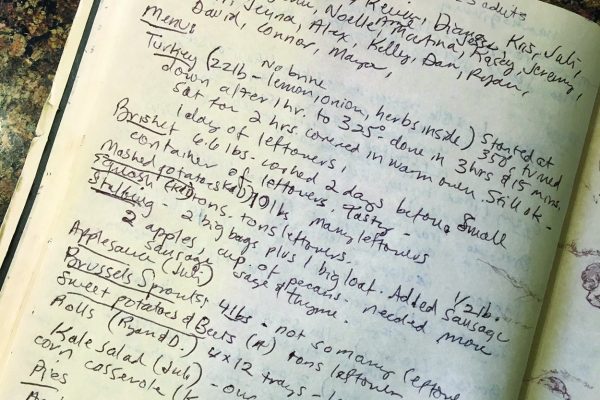 adults
Kevin, Dianne, Kris, Juli,
Jenna, Noelle, Martina, Kasey, Jeremy,
David, Connor, Alex, Kelly, Dan, Ryan,
Menu: Maya,
No brine
Turkey (22lb - lemon, onion, herbs inside) Started at 350° turned
down after 1 hr. to 325° done in 3 hrs & 15 mins.
Sat for 2 hrs. covered in warm oven. Still ok -
1 day of leftovers!
Brisket 6.6 lbs. cooked 2 days before. Small
container of leftovers. Tasty -
Mashed potatoes 10 lbs many leftovers
Squash tons leftovers.
Stuffing - 2 big bags plus 1 big loaf. Added 1/2 lb. sausage
2 apples, cup of pecans - needed more
sausage, sage & thyme.
Applesauce (Juli)
Brussels Sprouts: 4 lbs - not so many leftove
Sweet potatoes & Beets (K) tons leftover
Rolls (Ryan D.) 4 x 12 trays -
Kale Salad (Juli)
corn casserole (K
Pies